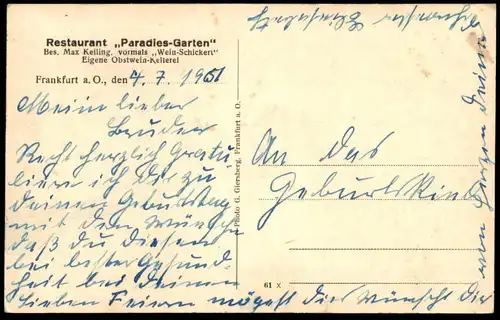 Restaurant „Paradies-Garten"
Bes. Max Keiling, vormals „Wein-Schickert"
Eigene Obstwein-Kelterei
Frankfurt a. O., den 4. 7. 1951
Mein lieber
Bruder
Recht herzlich Gratu
liere ich Dir zu
deinen Geburtstag
mit dem Wünsche
daß du diesen
bei bester Gesund
heit bei deinen
lieben Feiern mögest dies wünscht dir
von Herzen deine
Schwester
Photo G. Giersberg, Frankfurt a. O.
An das
Geburtskind
61 X